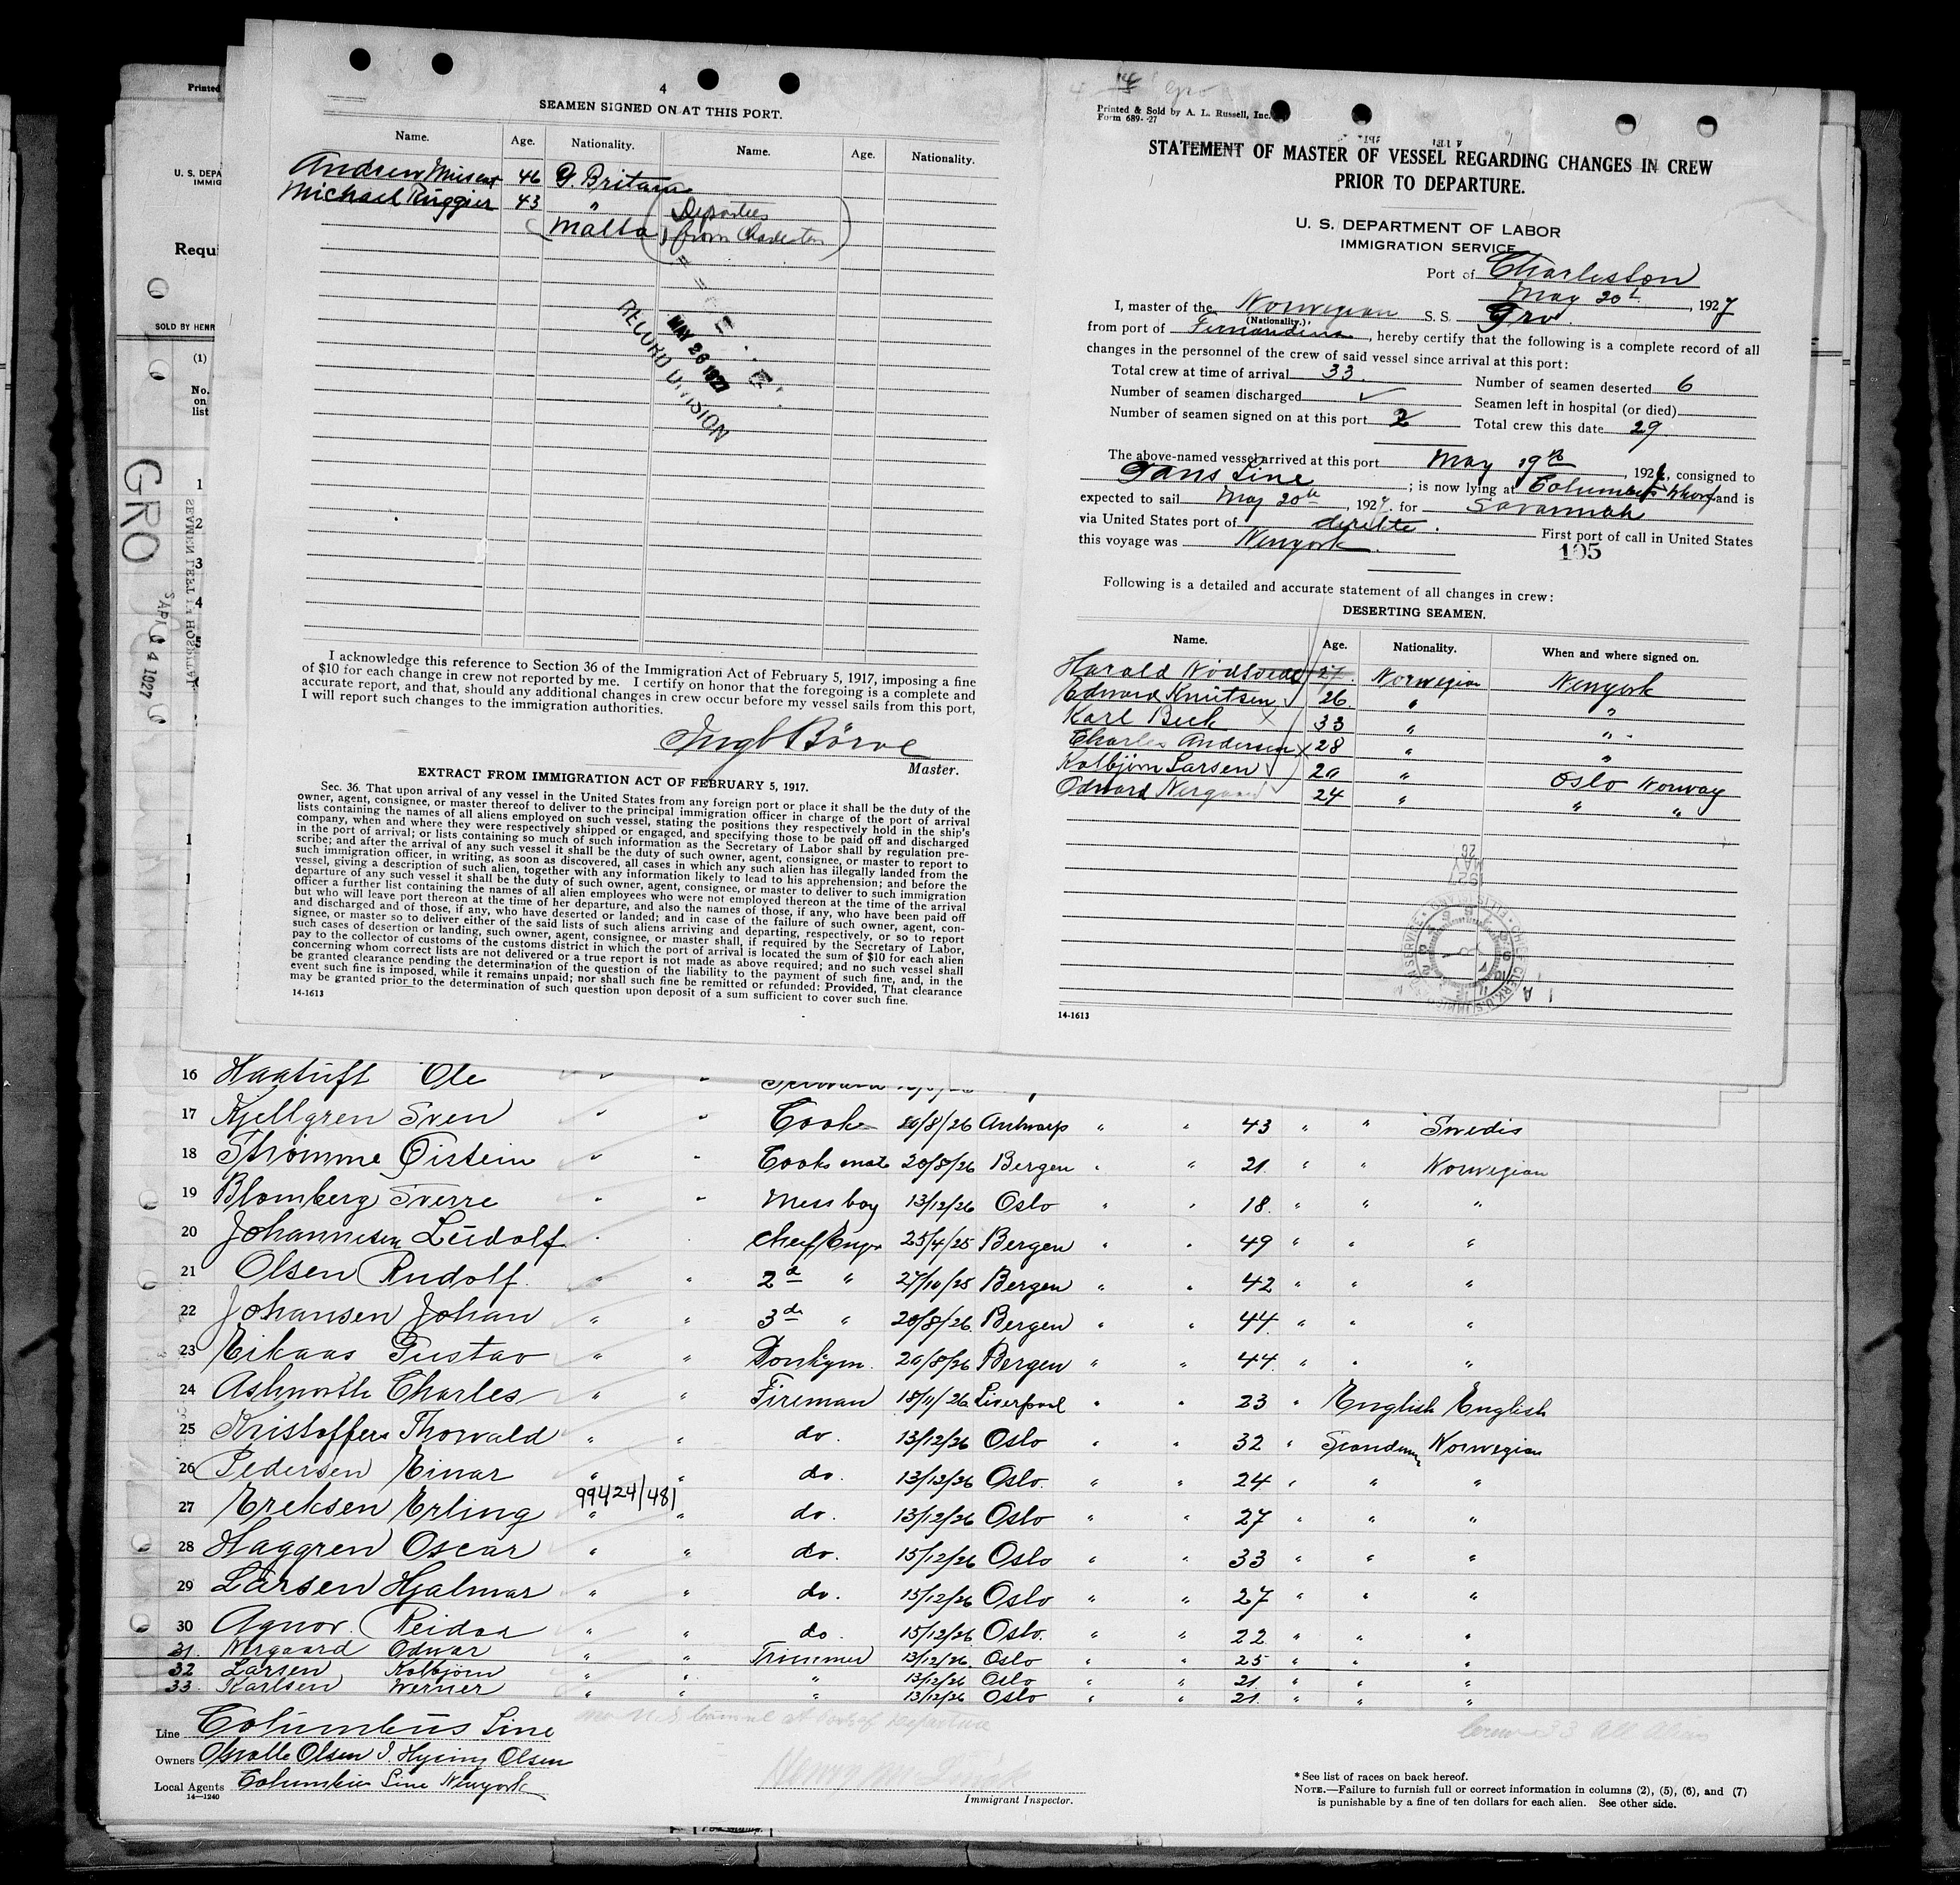 4
SEAMEN SIGNED ON AT THIS PORT.
Name. Age. Nationality. Name. Age. Nationality.
Andrew 46 G. Britain
Michael Ruggier 43 "
(Malta) (Deportees
from Charleston)
MAY 26 1927
RECORD DIVISION
I acknowledge this reference to Section 36 of the Immigration Act of February 5, 1917, imposing a fine
of $10 for each change in crew not reported by me. I certify on honor that the foregoing is a complete and
accurate report, and that, should any additional changes in crew occur before my vessel sails from this port,
I will report such changes to the immigration authorities.
Ingb Börve
Master.
EXTRACT FROM IMMIGRATION ACT OF FEBRUARY 5, 1917.
Sec. 36. That upon arrival of any vessel in the United States from any foreign port or place it shall be the duty of the
owner, agent, consignee, or master thereof to deliver to the principal immigration officer in charge of the port of arrival
lists containing the names of all aliens employed on such vessel, stating the positions they respectively hold in the ship's
company, when and where they were respectively shipped or engaged, and specifying those to be paid off and discharged
in the port of arrival; or lists containing so much of such information as the Secretary of Labor shall by regulation pre-
scribe; and after the arrival of any such vessel it shall be the duty of such owner, agent, consignee, or master to report to
such immigration officer, in writing, as soon as discovered, all cases in which any such alien has illegally landed from the
vessel, giving a description of such alien, together with any information likely to lead to his apprehension; and before the
departure of any such vessel it shall be the duty of such owner, agent, consignee, or master to deliver to such immigration
officer a further list containing the names of all alien employees who were not employed thereon at the time of the arrival
but who will leave port thereon at the time of her departure, and also the names of those, if any, who have been paid off
and discharged and of those, if any, who have deserted or landed; and in case of the failure of such owner, agent, con-
signee, or master so to deliver either of the said lists of such aliens arriving and departing, respectively, or so to report
such cases of desertion or landing, such owner, agent, consignee, or master shall, if required by the Secretary of Labor,
pay to the collector of customs of the customs district in which the port of arrival is located the sum of $10 for each alien
concerning whom correct lists are not delivered or a true report is not made as above required; and no such vessel shall
be granted clearance pending the determination of the question of the liability to the payment of such fine, and, in the
event such fine is imposed, while it remains unpaid; nor shall such fine be remitted or refunded: Provided, That clearance
may be granted prior to the determination of such question upon deposit of a sum sufficient to cover such fine.
14-1613
Gro
Printed & Sold by A. L. Russell, Inc.
Form 689--27
STATEMENT OF MASTER OF VESSEL REGARDING CHANGES IN CREW
PRIOR TO DEPARTURE.
U. S. DEPARTMENT OF LABOR
IMMIGRATION SERVICE
Port of Charleston
May 20t, 1927
I, master of the Norwegian S. S. Gro
(Nationality.)
from port of Fernandina, hereby certify that the following is a complete record of all
changes in the personnel of the crew of said vessel since arrival at this port:
Total crew at time of arrival 33. Number of seamen deserted 6
Number of seamen discharged ✓ Seamen left in hospital (or died)
Number of seamen signed on at this port 2 Total crew this date 29
The above-named vessel arrived at this port May 19th, 192, consigned to
Tans Line; is now lying at Columbus Wharf and is
expected to sail May 20th, 1927. for Savannah
via United States port of direkte. First port of call in United States
this voyage was Newyork.
105
Following is a detailed and accurate statement of all changes in crew:
DESERTING SEAMEN.
Name. Age. Nationality. When and where signed on.
Harald 27. Norwegian Newyork
Edward Knutsen 26 " "
Karl Beck 33 " "
Charles Andersen 28 " "
Kolbjorn Larsen 20 " Oslo Norway
Edward Nergaard 24 " " "
1927
MAY
26
14-1613
Printed
U. S. DEPA
IMMIG
Requi
SOLD BY HENR
(1)
No.
on
list
GRO
1
2
3
4
5
16 Haatuft Ole " "
17 Kjellgren Sven " " Cook 20/8/26 Antwerp " " 43 " " Swedis
18 Strömme Öistein " " Cooks mate 20/8/26 Bergen " " 21. " " Norwegian
19 Blomberg Sverre " " Mess boy 13/12/26 Oslo " " 18. " " "
20 Johannesen Ludolf " " Cheef Engr 25/4/25 Bergen " " 49 " " "
21 Olsen Rudolf. " " 2d " 27/10/25 Bergen " " 42 " " "
22 Johansen Johan " " 3d " 20/8/26. Bergen " " 44. " " "
23 Eikaas Gustav " " Donkym. 20/8/26 Bergen " " 44. " " "
24 Ashworth Charles " " Fireman 18/11/26 Liverpool " " 23 " English English
25 Kristoffers Thorvald " " do. 13/12/26 Oslo " " 32 " Scandinav Norwegian
26 Pedersen Einar " " do. 13/12/26 Oslo. " " 24 " " "
99424/481
27 Ereksen Erling " " do. 13/12/26 Oslo " " 27 " " "
28 Haggren Oscar " " do. 15/12/26 Oslo " " 33 " " "
29 Larsen Hjalmar " " do. 15/12/26 Oslo " " 27 " " "
30 Agnor. Reidar " " do. 15/12/26 Oslo. " " 22 " " "
31. Nergaard Edwar " " Trimmer 13/12/26. Oslo " " 25 " " "
32 Larsen Kolbjorn " " " 13/12/26 Oslo " " 21 " " "
33. Karlsen Werner " " " 13/12/26 Oslo " " 21. " " "
Line Columbus Line
Owners Olsen Olsen
Local Agents Columbus Line Newyork
14—1240
Crew 33 All Aliens
Immigrant Inspector.
* See list of races on back hereof.
NOTE.—Failure to furnish full or correct information in columns (2), (5), (6), and (7)
is punishable by a fine of ten dollars for each alien. See other side.